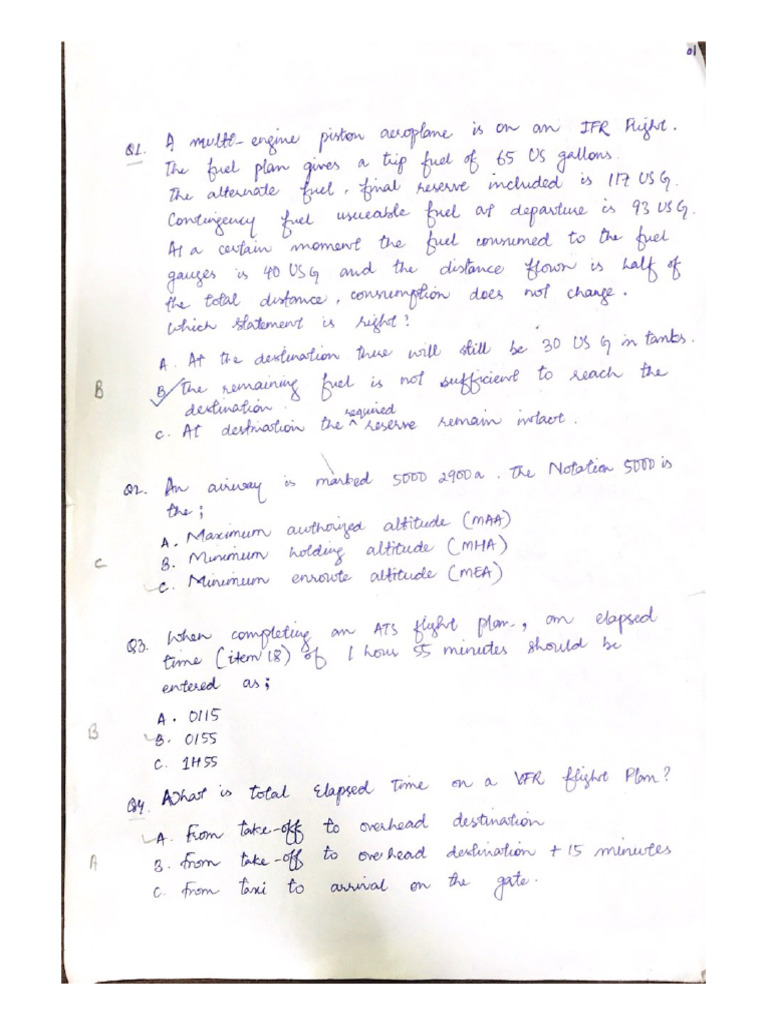 01
Q1. A multi-engine piston aeroplane is on an IFR flight.
The fuel plan gives a trip fuel of 65 US gallons.
The alternate fuel, final reserve included is 117 US G.
Contingency fuel usueable fuel at departure is 93 US G.
At a certain moment the fuel consumed to the fuel
gauges is 40 US G and the distance flown is half of
the total distance, consumption does not change.
Which statement is right?
A. At the destination there will still be 30 US G in tanks.
B B. The remaining fuel is not sufficient to reach the
destination.
C. At destination the required reserve remain intact.
Q2. An airway is marked 5000 2900a. The Notation 5000 is
the;
A. Maximum authorized altitude (MAA)
B. Minimum holding altitude (MHA)
C C. Minimum enroute altitude (MEA)
Q3. When completing an ATS flight plan, an elapsed
time (item 18) of 1 hour 55 minutes should be
entered as;
A. 0115
B B. 0155
C. 1H55
Q4. What is total Elapsed Time on a VFR flight Plan?
A. From take-off to overhead destination
A B. From take-off to overhead destination + 15 minutes
C. From taxi to arrival on the gate.